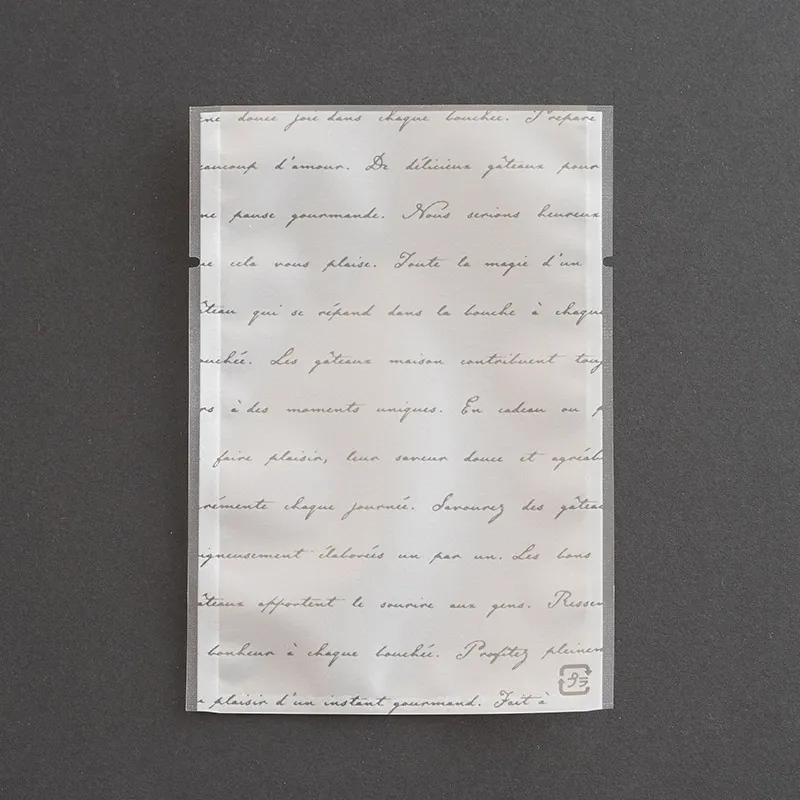 ne douce joie dans chaque bouchée. Prépare
eaucoup d'amour. De délicieux gâteaux pour
ne pause gourmande. Nous serions heureux
ue cela vous plaise. Toute la magie d'un
âteau qui se répand dans la bouche à chaque
ouchée. Les gâteaux maison contribuent touj
rs à des moments uniques. En cadeau ou p
faire plaisir, leur saveur douce et agréab
rémente chaque journée. Savourez des gâteau
igneusement élaborés un par un. Les bons
âteaux apportent le sourire aux gens. Ressen
bonheur à chaque bouchée. Profitez pleinem
プラ
plaisir d'un instant gourmand. Fait à